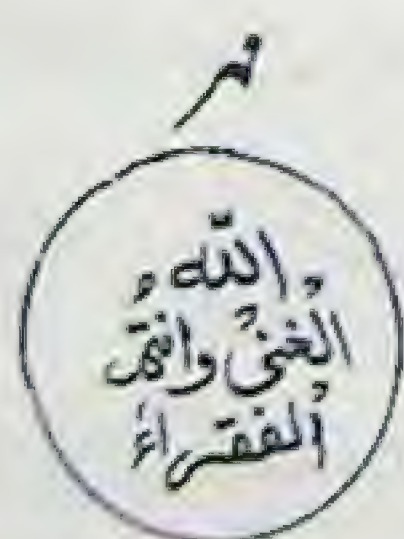 مهر
الله
الغنى وانتم
الفقراء